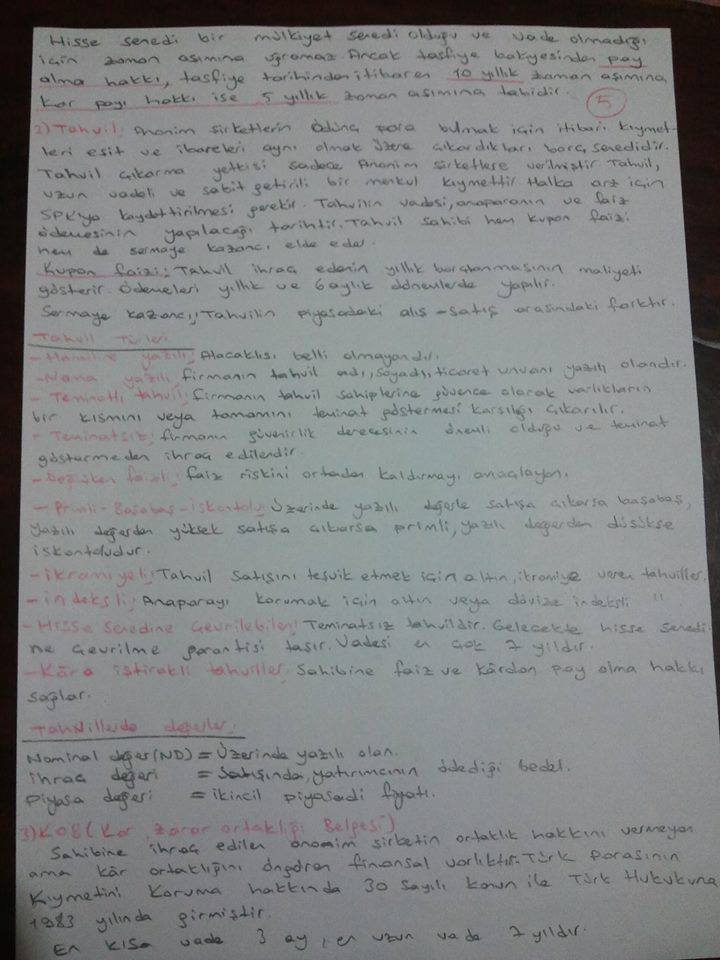 Hisse senedi bir mülkiyet senedi olduğu ve vade olmadığı
için zaman aşımına uğramaz. Ancak tasfiye bakiyesinden pay
alma hakkı, tasfiye tarihinden itibaren 10 yıllık zaman aşımına
kar payı hakkı ise 5 yıllık zaman aşımına tabidir.
5
2) Tahvil: Anonim şirketlerin ödünç para bulmak için itibari kıymet-
leri eşit ve ibareleri aynı olmak üzere çıkardıkları borç senedidir.
Tahvil çıkarma yetkisi sadece Anonim şirketlere verilmiştir. Tahvil,
uzun vadeli ve sabit getirili bir menkul kıymettir. Halka arz için
SPK'ya kaydettirilmesi gerekir. Tahvilin vadesi, anaparanın ve faiz
ödemesinin yapılacağı tarihtir. Tahvil sahibi hem kupon faizi
hem de sermaye kazancı elde eder.
Kupon faizi: Tahvil ihraç edenin yıllık borçlanmasının maliyeti
gösterir. Ödemeleri yıllık ve 6 aylık dönemlerde yapılır.
Sermaye kazancı: Tahvilin piyasadaki alış-satış arasındaki farktır.
Tahvil Türleri
- Hamiline yazılı: Alacaklısı belli olmayandır.
- Nama yazılı: Firmanın tahvil adı, soyadı, ticaret unvanı yazılı olandır.
- Teminatlı tahvil: Firmanın tahvil sahiplerine güvence olarak varlıkların
bir kısmını veya tamamını teminat göstermesi karşılığı çıkarılır.
- Teminatsız: Firmanın güvenirlik derecesinin önemli olduğu ve teminat
göstermeden ihraç edilendir.
- Değişken faizli: Faiz riskini ortadan kaldırmayı amaçlayan.
- Primli-Başabaş-iskontolu: Üzerinde yazılı değerle satışa çıkarsa başabaş,
Yazılı değerden yüksek satışa çıkarsa primli, yazılı değerden düşükse
iskontoludur.
- ikramiyeli: Tahvil satışını teşvik etmek için altın, ikramiye veren tahviller.
- indeksli: Anaparayı korumak için altın veya dövize indeksli "
- Hisse Senedine Çevrilebilen: Teminatsız tahvildir. Gelecekte hisse senedi-
ne çevrilme garantisi taşır. Vadesi en çok 7 yıldır.
- Kâra iştiraklı tahviller: Sahibine faiz ve kârdan pay alma hakkı
sağlar.
Tahvillerde değerler:
Nominal değer (ND) = Üzerinde yazılı olan.
ihraç değeri = Satışında, yatırımcının ödediği bedel.
Piyasa değeri = ikincil piyasadi fiyatı.
3) KOB (Kar, zarar ortaklığı Belgesi)
Sahibine ihraç edilen anonim şirketin ortaklık hakkını vermeyen
ama kâr ortaklığını öngören finansal varlıktır. Türk Parasının
Kıymetini Koruma hakkında 30 sayılı kanun ile Türk Hukukuna
1983 yılında girmiştir.
En kısa vade 3 ay, en uzun vade 7 yıldır.